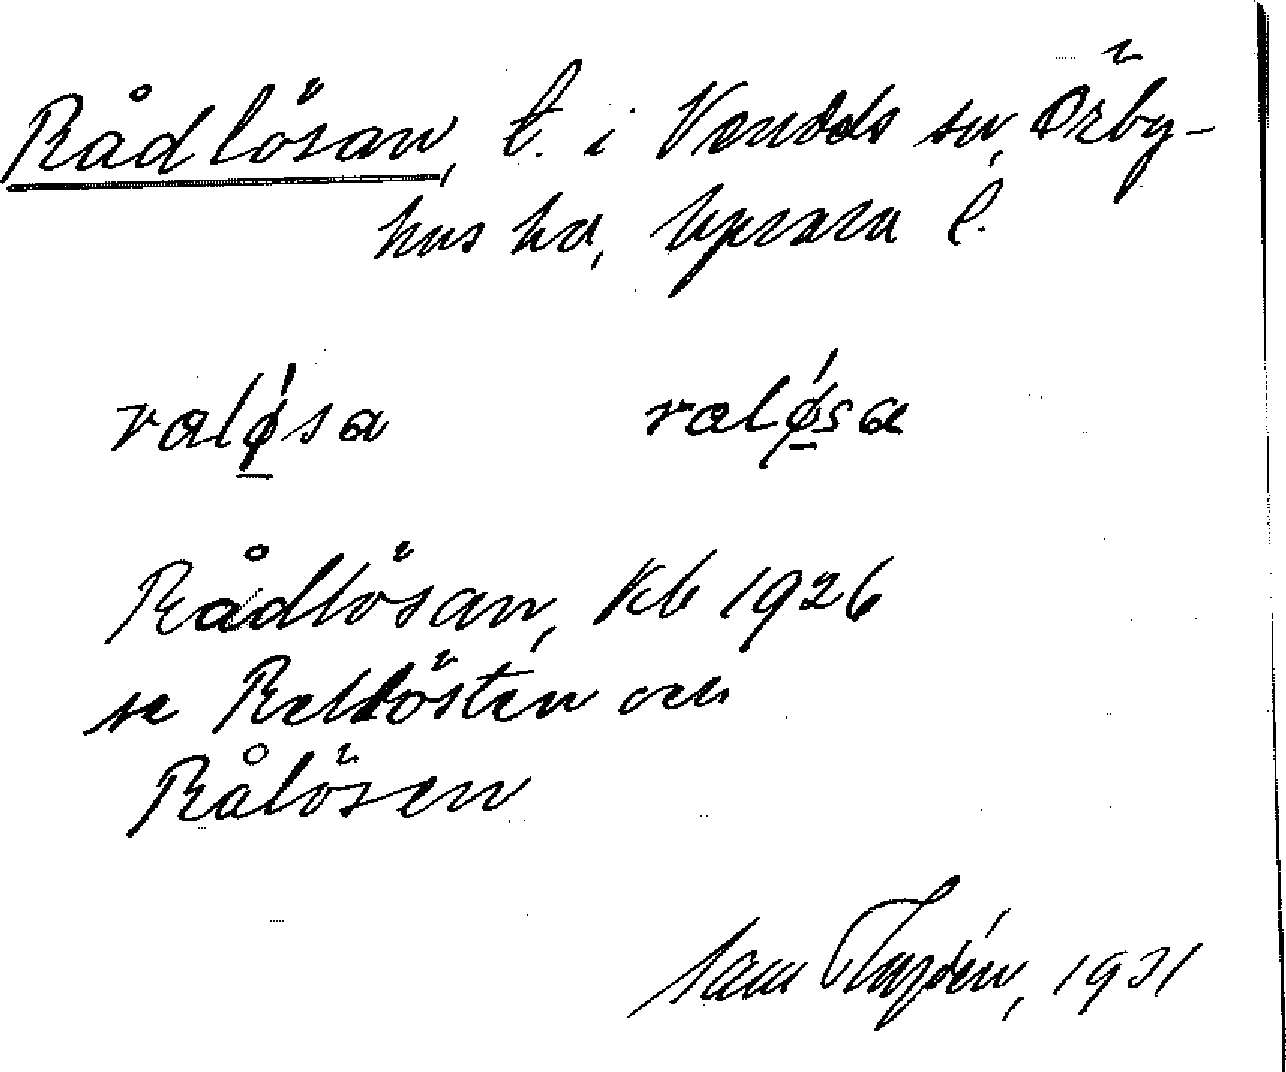 Rådlösan, t. i Vendels sn, Örby-
hus hd, Uppsala l.
ralǿ̱sa ralǿ̱sa
Rådlösan, Kb 1926
se Rallösten och
Rålösen
1931